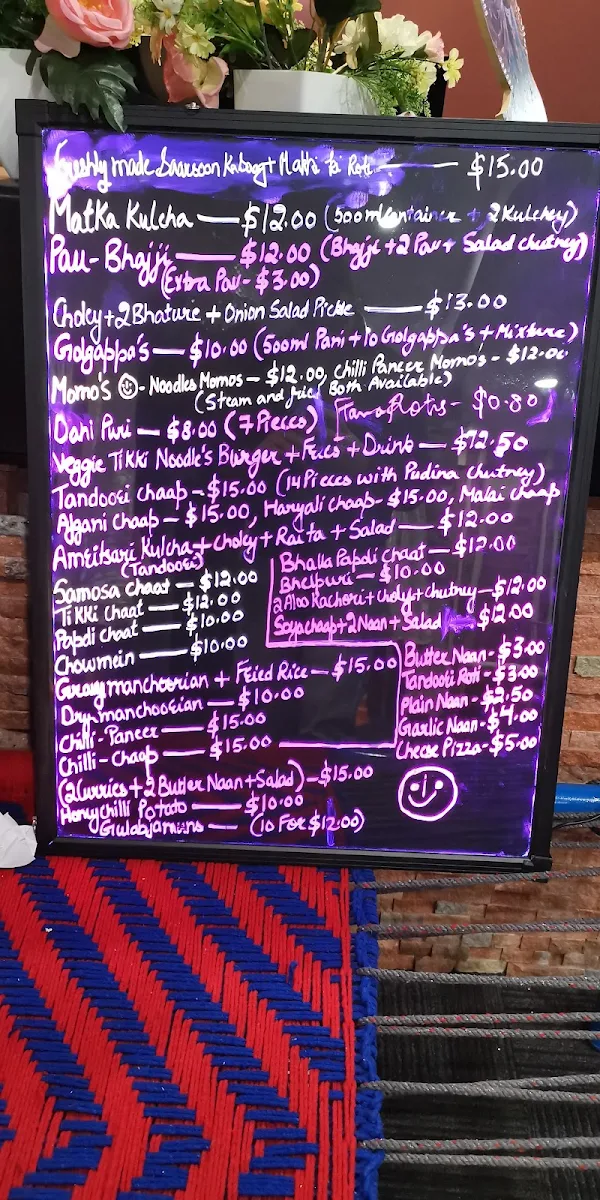 Freshly made Saarson Ka Saag + Makki Ki Roti — $15.00
Matka Kulcha — $12.00 (500ml Container + 2 Kulchey)
Pau-Bhajji — $12.00 (Bhajji + 2 Pau + Salad chutney)
(Extra Pau- $3.00)
Choley+2Bhature + Onion Salad Pickle — $13.00
Golgappa's — $10.00 (500ml Pani + 10 Golgappa's + Mixture)
Momo's - Noodles Momos — $12.00, Chilli Paneer Momos - $12.00
(Steam and fried Both Available)
Dahi Puri — $8.00 (7 Pieces)
- $0.80
Veggie Tikki Noodle's Burger + Fries + Drink — $12.50
Tandoori chaap - $15.00 (14 Pieces with Pudina chutney)
Afgani chaap — $15.00, Haryali chaap- $15.00, Malai chaap
Amritsari Kulcha + choley + Raita + Salad — $12.00
(Tandoori)
Samosa chaat — $12.00
Tikki chaat — $12.00
Papdi chaat — $10.00
Chowmein — $10.00
Bhalla Papdi chaat — $12.00
Bhelpuri — $10.00
2 Aloo Kachori + choley + chutney — $12.00
Soyachaap+2 Naan + Salad $12.00
Gravy manchoorian + Fried Rice — $15.00
Dry-manchoorian — $10.00
Chilli-Paneer — $15.00
Chilli-Chaap — $15.00
Butter Naan - $3.00
Tandoori Roti - $3.00
Plain Naan - $2.50
Garlic Naan - $4.00
Cheese Pizza - $5.00
(2Curries + 2 Butter Naan + Salad) — $15.00
Honey chilli Potato — $10.00
Gulabjamuns — (10 For $12.00)